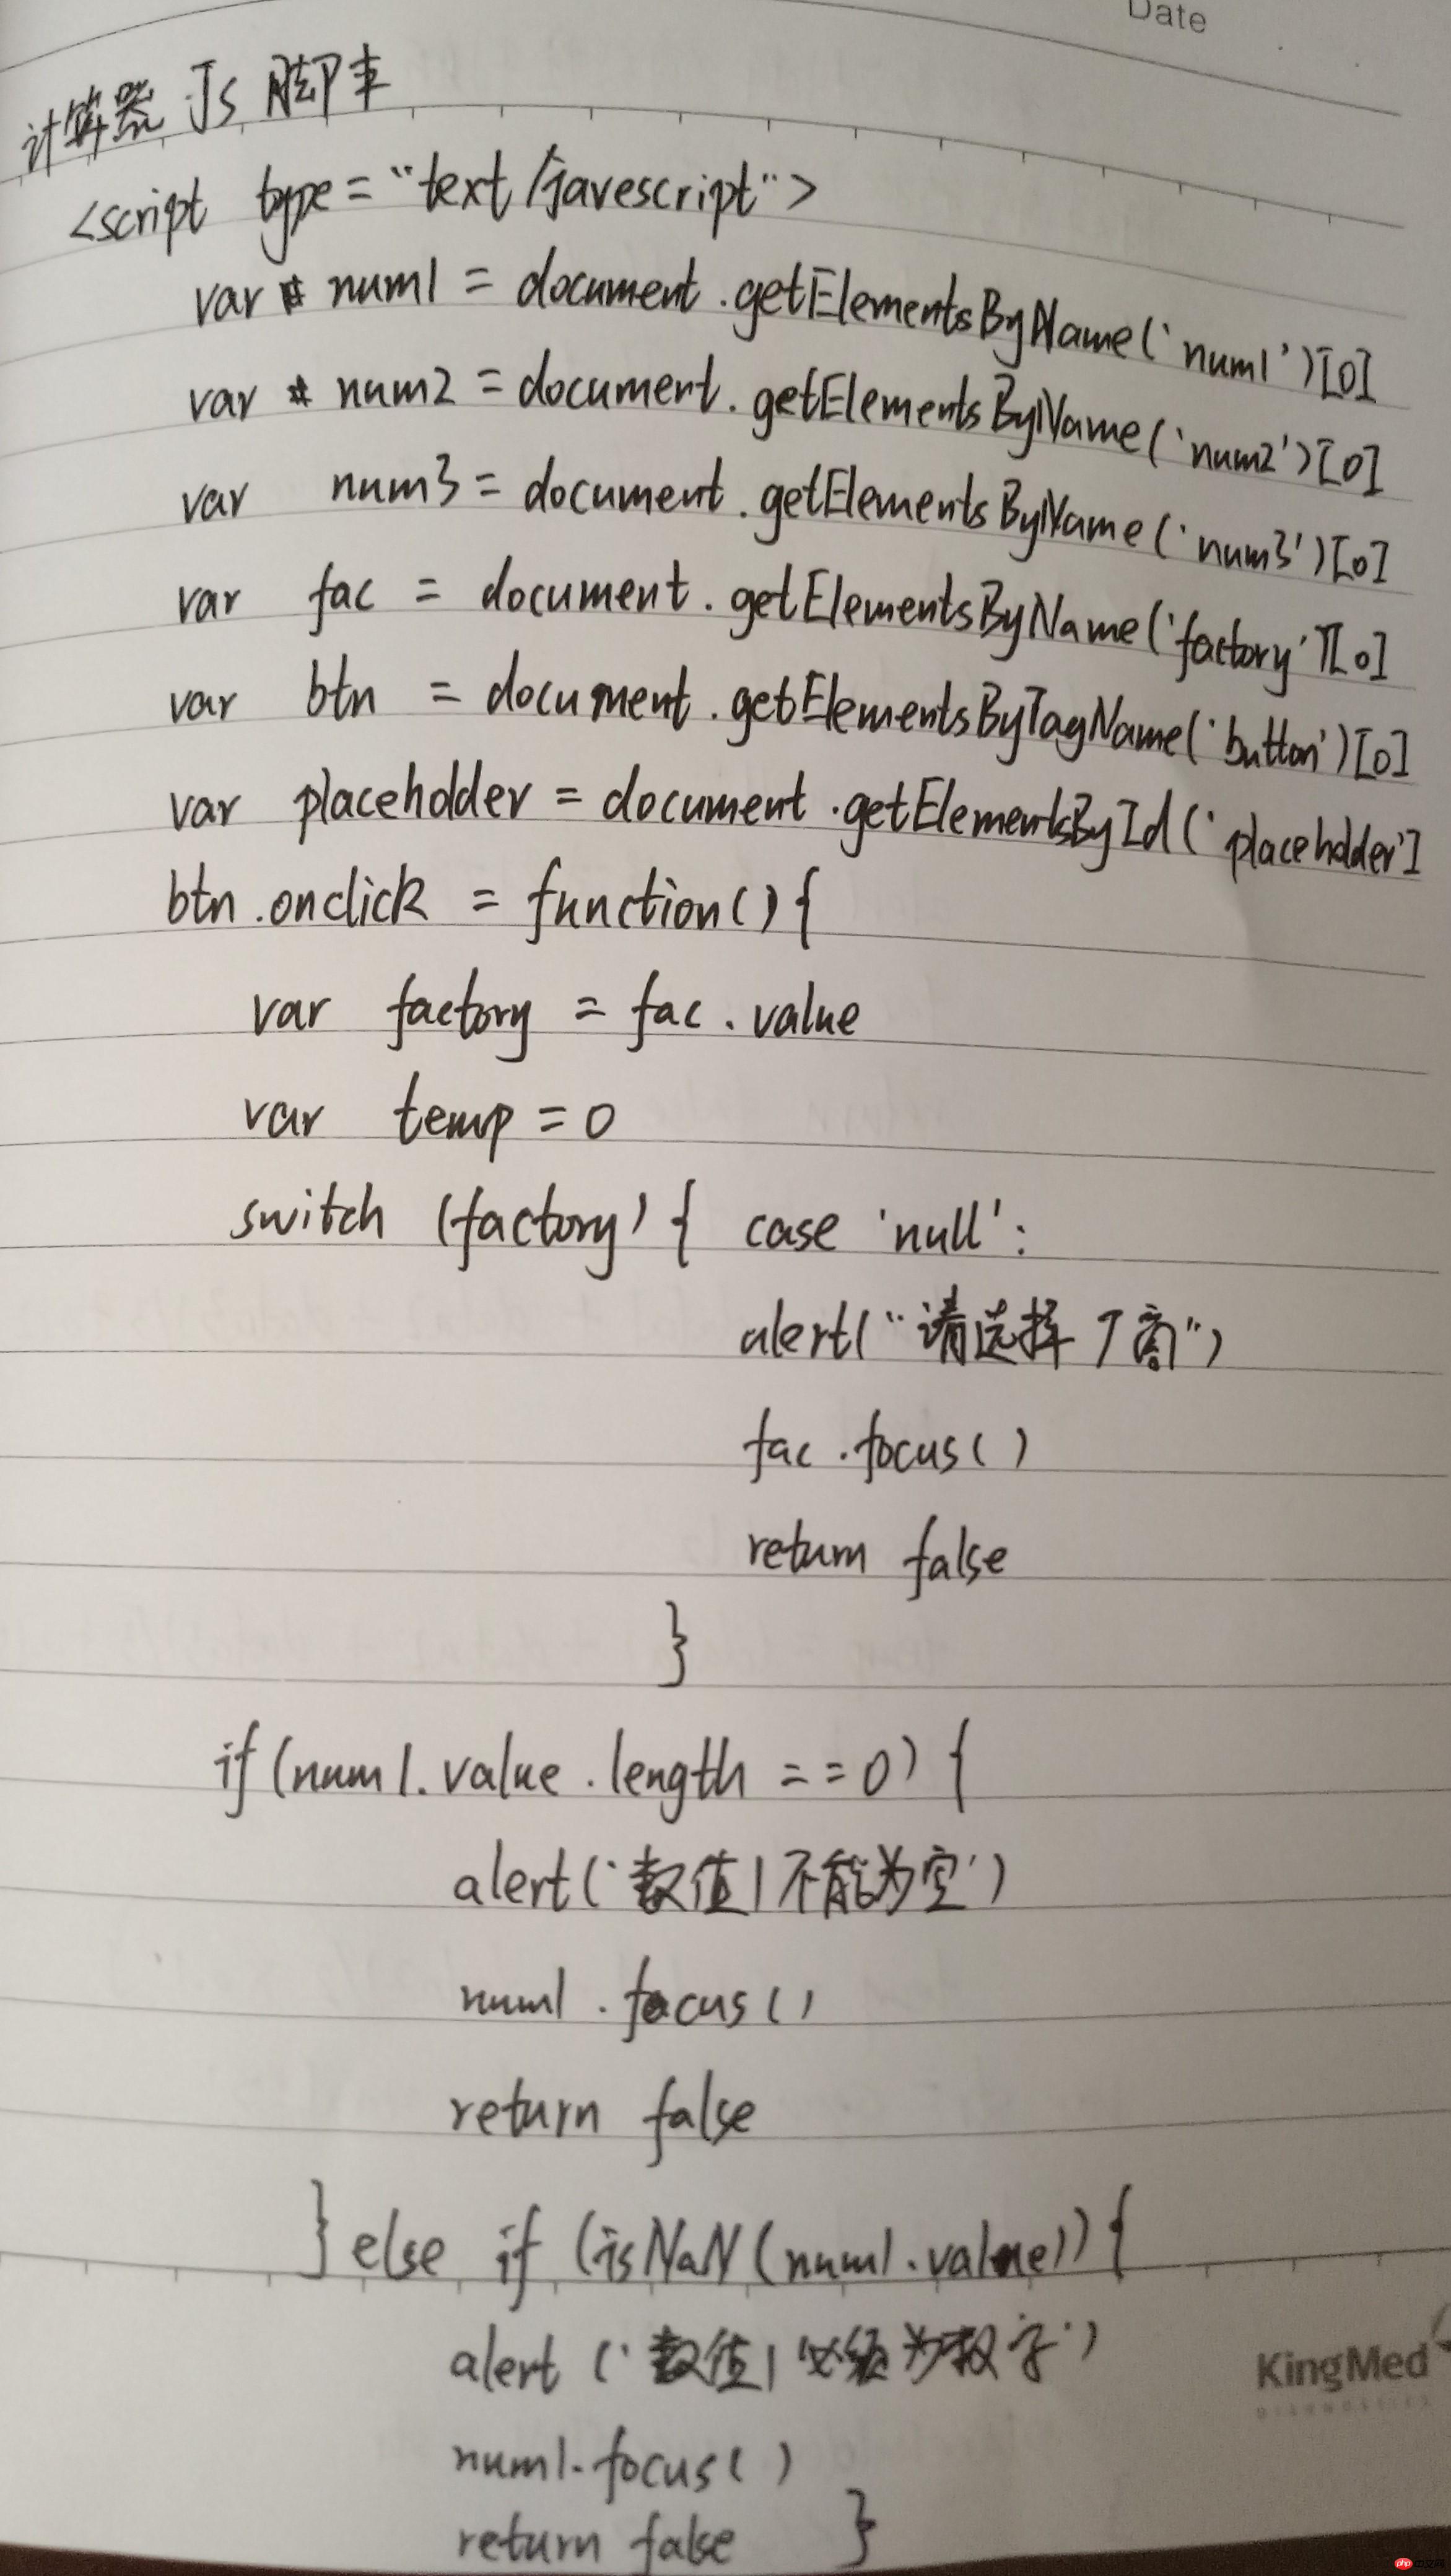 Date
计算器 Js 脚本
<script type="text/javescript">
var num1 = document.getElementsByName('num1')[0]
var num2 = document.getElementsByName('num2')[0]
var num3 = document.getElementsByName('num3')[0]
var fac = document.getElementsByName('factory'][0]
var btn = document.getElementsByTagName('button')[0]
var placeholder = document.getElementsById('placeholder']
btn.onclick = function(){
var factory = fac.value
var temp = 0
switch (factory) { case 'null':
alert("请选择厂商")
fac.focus()
return false
}
if(num1.value.length == 0) {
alert('数值1不能为空')
num1.focus()
return false
} else if (isNaN(num1.value)) {
alert('数值1必须为数字')
num1.focus()
return false }
KingMed
DIAGNOSTICS
php